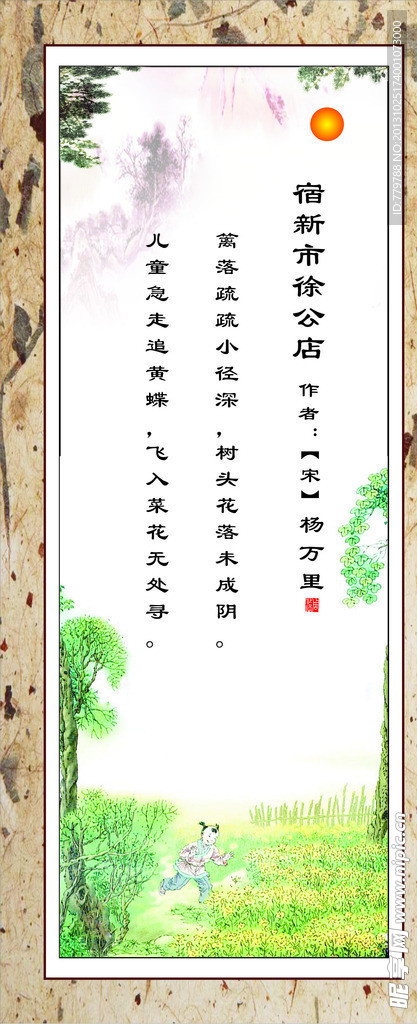 宿新市徐公店 作者：【宋】杨万里
篱落疏疏小径深，树头花落未成阴。
儿童急走追黄蝶，飞入菜花无处寻。
ID:779788 NO:20131025174001073000
昵享网 www.nipic.cn